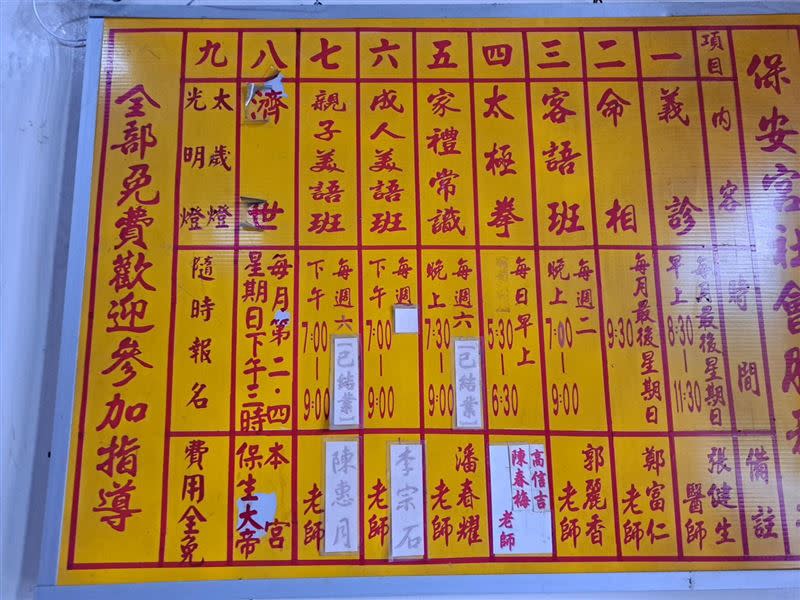 保安宮社會服
項目內容
時間
備註
一
義診
每月最後星期日
早上8:30-11:30
張健生
醫師
二
命相
每月最後星期日
9:30
鄭富仁
老師
三
客語班
每週二
晚上7:00-9:00
郭麗香
老師
四
太極拳
每日早上
5:30-6:30
高信吉
陳春梅
老師
五
家禮常識
每週六
[已結業]
晚上7:30-9:00
潘春耀
老師
六
成人美語班
每週
下午7:00-9:00
李宗石
老師
七
親子美語班
每週六
[已結業]
下午7:00-9:00
陳惠月
老師
八
濟世
每月第二·四
星期日下午三時
本宮
保生大帝
九
太歲燈
光明燈
隨時報名
費用全免
全部免費歡迎參加指導